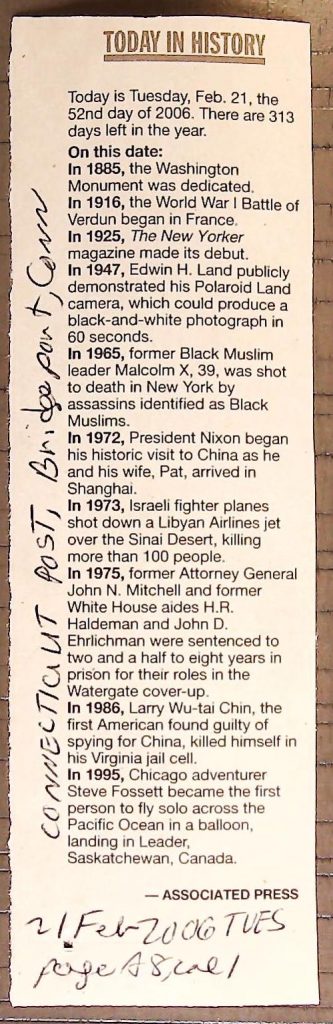 TODAY IN HISTORY
Today is Tuesday, Feb. 21, the
52nd day of 2006. There are 313
days left in the year.
On this date:
In 1885, the Washington
Monument was dedicated.
In 1916, the World War I Battle of
Verdun began in France.
In 1925, The New Yorker
magazine made its debut.
In 1947, Edwin H. Land publicly
demonstrated his Polaroid Land
camera, which could produce a
black-and-white photograph in
60 seconds.
In 1965, former Black Muslim
leader Malcolm X, 39, was shot
to death in New York by
assassins identified as Black
Muslims.
In 1972, President Nixon began
his historic visit to China as he
and his wife, Pat, arrived in
Shanghai.
In 1973, Israeli fighter planes
shot down a Libyan Airlines jet
over the Sinai Desert, killing
more than 100 people.
In 1975, former Attorney General
John N. Mitchell and former
White House aides H.R.
Haldeman and John D.
Ehrlichman were sentenced to
two and a half to eight years in
prison for their roles in the
Watergate cover-up.
In 1986, Larry Wu-tai Chin, the
first American found guilty of
spying for China, killed himself in
his Virginia jail cell.
In 1995, Chicago adventurer
Steve Fossett became the first
person to fly solo across the
Pacific Ocean in a balloon,
landing in Leader,
Saskatchewan, Canada.
— ASSOCIATED PRESS
CONNECTICUT POST, Bridgeport, Conn
21 Feb 2006 TUES
page A8, col 1